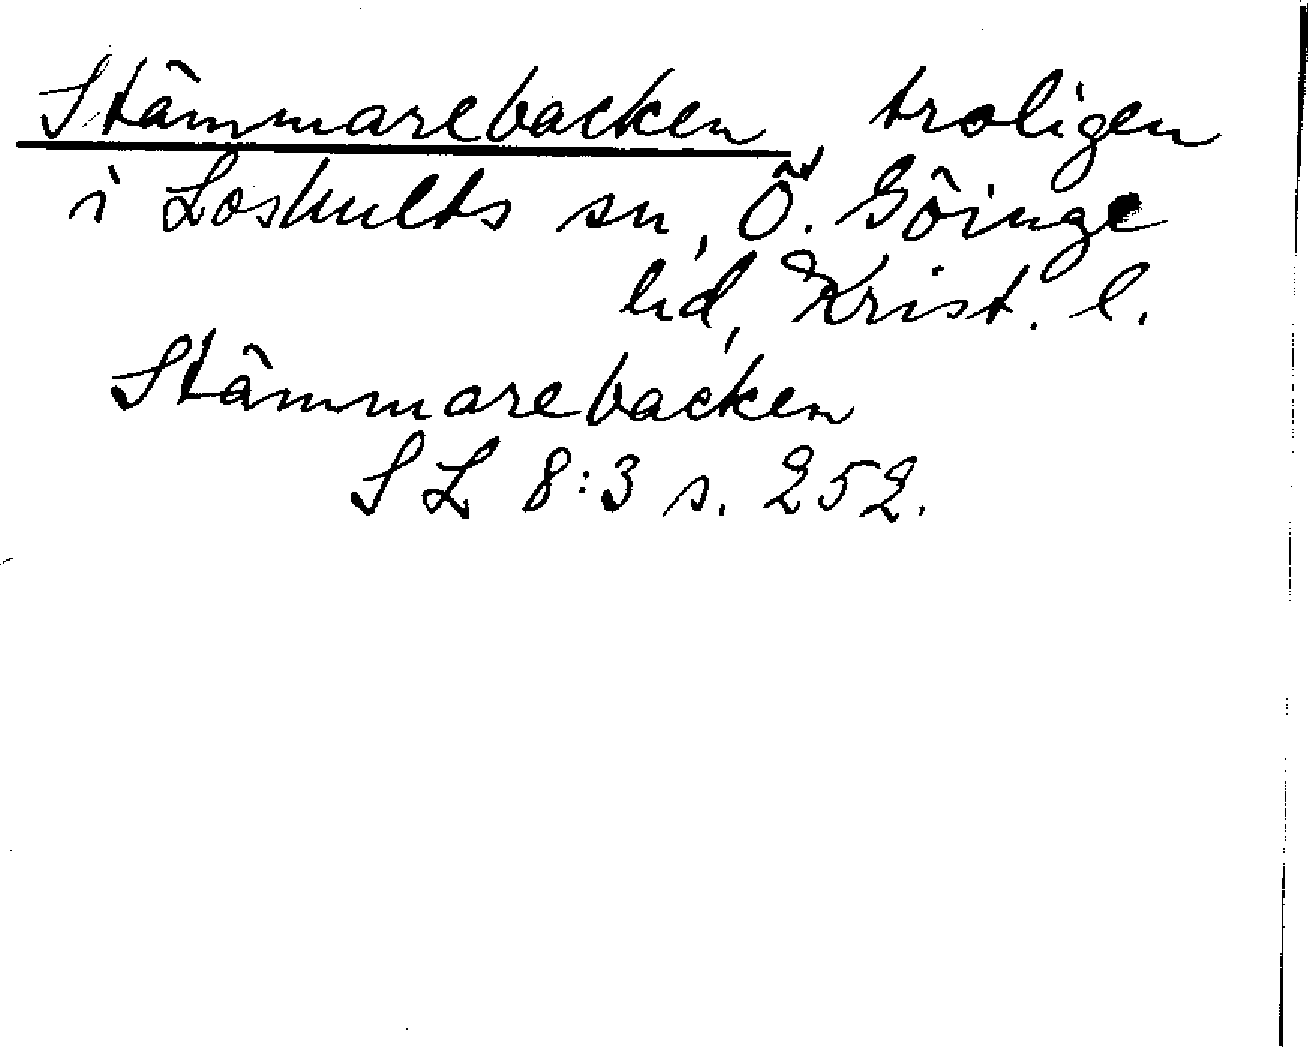 Stämmarebacken, troligen
i Loshults sn, Ö. Göinge
hd, Krist. l.
Stämmarebacken
SL 8:3 s. 252.